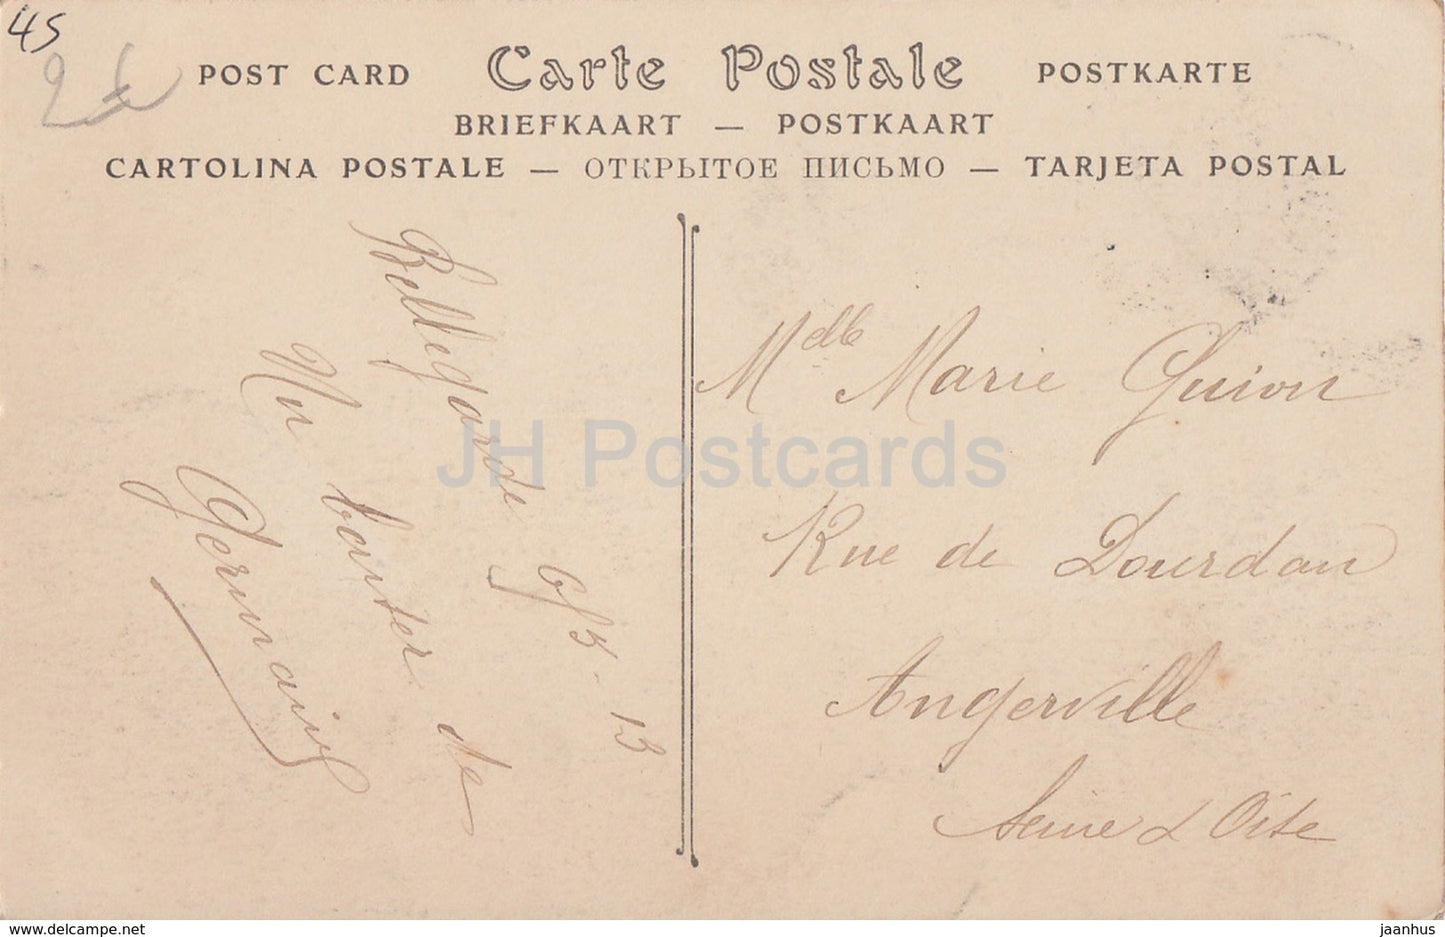 45
POST CARD Carte Postale POSTKARTE
BRIEFKAART — POSTKAART
CARTOLINA POSTALE — ОТКРЫТОЕ ПИСЬМО — TARJETA POSTAL
Bellegarde 6/3-13
Un baiser de
Germaine
Mdlle Marie Guion
Rue de Dourdan
Angerville
Seine & Oise
JH Postcards
www.delcampe.net
jaanhus